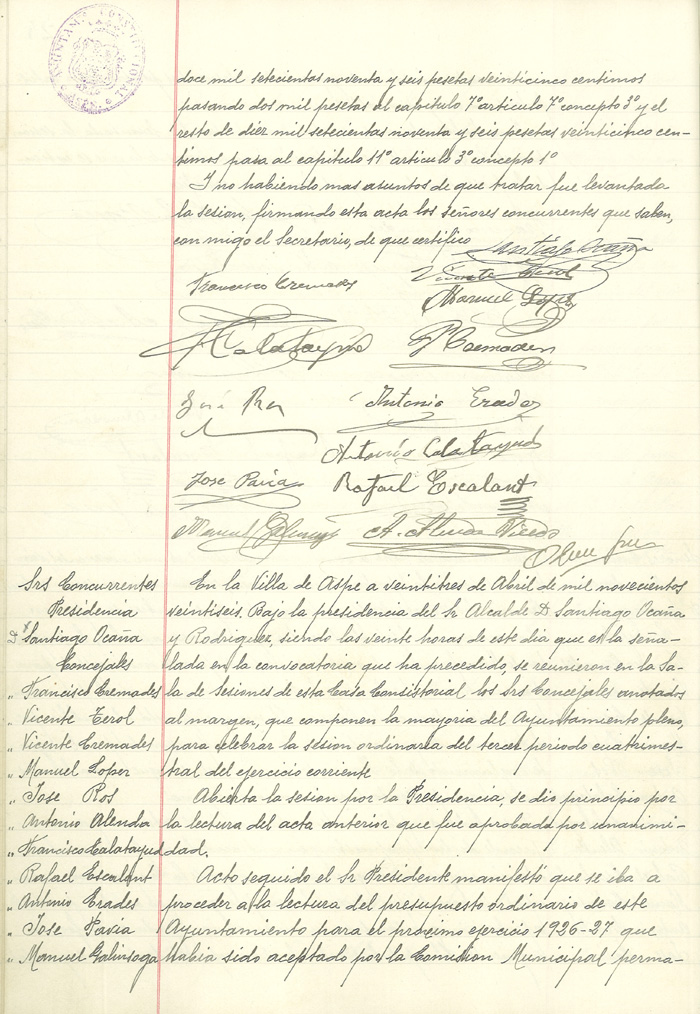 AYUNTAMIENTO CONSTITUCIONAL
doce mil setecientas noventa y seis pesetas veinticinco centimos
pasando dos mil pesetas al capitulo 7º articulo 7º concepto 3º y el
resto de diez mil setecientas noventa y seis pesetas veinticinco cen-
timos pasa al capitulo 11º articulo 3º concepto 1º
Y no habiendo mas asuntos de que tratar fue levantada
la sesion, firmando esta acta los señores concurrentes que saben,
con migo el Secretario, de que certifico
Santiago Ocaña
Francisco Cremades
Vicente Terol
Manuel Lopez
Calatayud
Cremades
José Ros
Antonio Erades
Antonio Calatayud
Jose Pavia
Rafael Escalant
Manuel
A. Alenda
Srs Concurrentes
Presidencia
Dⁿ Santiago Ocaña
Concejales
„ Francisco Cremades
„ Vicente Terol
„ Vicente Cremades
„ Manuel Lopez
„ Jose Ros
„ Antonio Alenda
„ Francisco Calatayud
„ Rafael Escalant
„ Antonio Erades
„ Jose Pavia
„ Manuel Galinsoga
En la Villa de Aspe a veintitres de Abril de mil novecientos
veintiseis. Bajo la presidencia del Sr Alcalde D. Santiago Ocaña
y Rodriguez, siendo las veinte horas de este dia que es la seña-
lada en la convocatoria que ha precedido, se reunieron en la Sa-
la de Sesiones de esta Casa Consistorial los Srs Concejales anotados
al margen, que componen la mayoria del Ayuntamiento pleno,
para celebrar la sesion ordinaria del tercer periodo cuatrimes-
tral del ejercicio corriente
Abierta la sesion por la Presidencia, se dio principio por
la lectura del acta anterior que fue aprobada por unanimi-
dad.
Acto seguido el Sr Presidente manifestó que se iba a
proceder a la lectura del presupuesto ordinario de este
Ayuntamiento para el proximo ejercicio 1926-27 que
habia sido aceptado por la Comision Municipal perma-